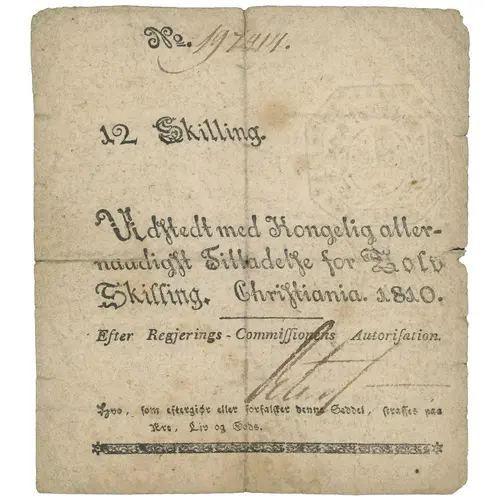 No. 197414.
12 Skilling.
Udstedt med Kongelig aller-
naadigst Tilladelse for Tolv
Skilling. Christiania. 1810.
Efter Regjerings-Commissionens Autorisation.
Hvo, som eftergiør eller forfalsker denne Seddel, straffes paa
Ære, Liv og Gods.